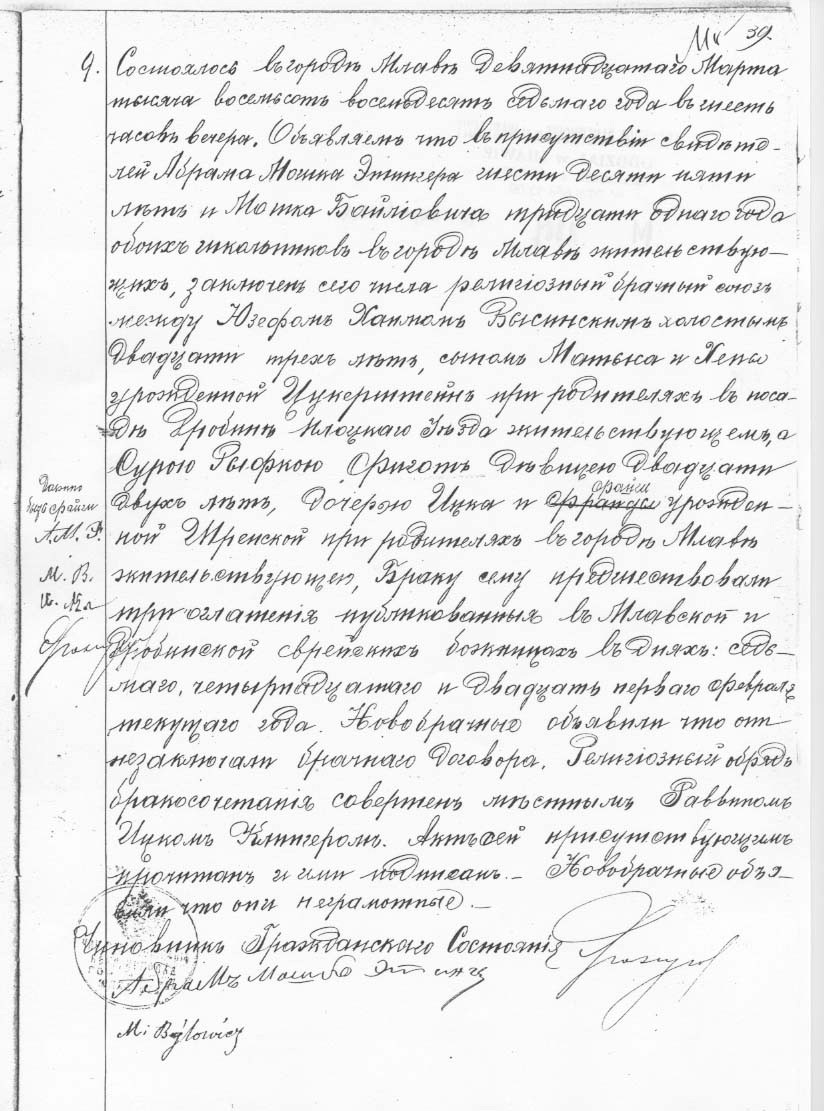 39.
9.
Состоялось въ городѣ Млавѣ Девятнадцатаго Марта
тысяча восемьсотъ восемьдесятъ седьмаго года въ шесть
часовъ вечера. Объявляемъ что въ присутствіи свидѣте-
лей Абрама Мошка Этингера шести десяти пяти
лѣтъ и Мошка Байловича тридцати однаго года
обоихъ школьниковъ въ городѣ Млавѣ жительствую-
щихъ, заключенъ сего числа религіозный брачный союзъ
между Юзефомъ Хаимомъ Высинскимъ холостымъ
двадцати трехъ лѣтъ, сыномъ Матыса и Хены
урожденной Цукерштейнъ при родителяхъ въ поса-
дѣ Дробинѣ Плоцкаго Уѣзда жительствующемъ, а
Сурою Рыфкою Фиготъ дѣвицею двадцати
Фрайи
двухъ лѣтъ, дочерью Ицка и Фрайды урожден-
ной Шренской при родителяхъ въ городѣ Млавѣ
жительствующею, Браку сему предшествовали
три оглашенія публикованныя въ Млавской и
Дробинской еврейскихъ божницахъ въ дняхъ: седь-
маго, четырнадцатаго и двадцать перваго Февраля
текущаго года. Новобрачные объявили что они
незаключали брачнаго договора. Религіозный обрядъ
бракосочетанія совершенъ мѣстнымъ Раввиномъ
Ицкомъ Клингеромъ. Актъ сей присутствующимъ
прочитанъ и ими подписанъ. - Новобрачные объя-
вили что они неграмотные. -
Чиновникъ Гражданскаго Состоянія
Абрамъ Мошко Этингер
M: Bajlowicz
быть Фрайи
А. М. Э.
М. В.